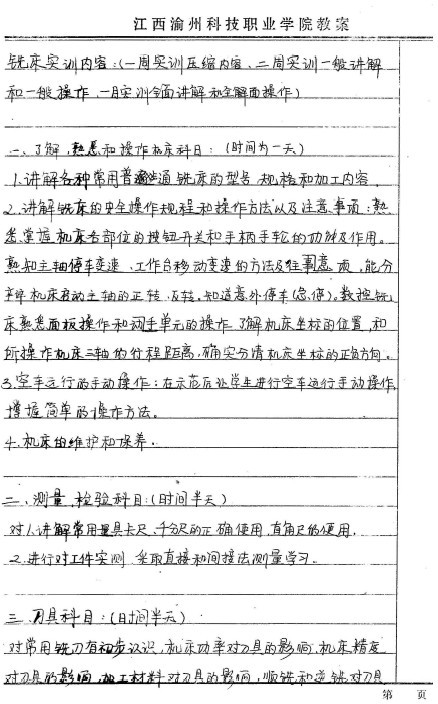 江西渝州科技职业学院教案
铣床实训内容:(一周实训压缩内容、二周实训一般讲解
和一般操作、一月实训全面讲解和全解面操作)
一、了解,熟悉和操作机床科目:(时间为一天)
1.讲解各种常用普通铣床的型号 规格和加工内容.
2.讲解铣床的安全操作规程和操作方法以及注意事项:熟
悉掌握机床各部位的按钮开关和手柄手轮的功能及作用。
熟知主轴停车变速、工作台移动变速的方法及注意事项,能分
辨机床启动主轴的正转、反转,知道意外停车(急停)。数控铣
床熟悉面板操作和手单元的操作 了解机床坐标的位置,和
所操作机床三轴的行程距离,确实分清机床坐标的正负方向。
3.空车运行的手动操作:在示范后让学生进行空车运行手动操作,
掌握简单的操作方法。
4.机床的维护和保养.
二、测量、检验科目:(时间半天)
对1.讲解常用量具卡尺、千分尺的正确使用,直角尺的使用.
2.进行对工件实测 采取直接和间接法测量学习.
三、刀具科目:(时间半天)
对常用铣刀有初步认识,机床功率对刀具的影响,机床精度
对刀具的影响,加工材料对刀具的影响,顺铣和逆铣对刀具
第 页